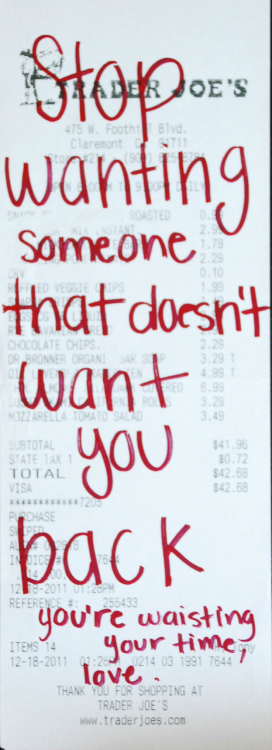 Stop
wanting
someone
that doesn't
want
you
back
you're waisting
your time,
love.
TRADER JOE'S
475 W. Foothill Blvd.
Claremont 91711
Store #214
ROASTED 0.
INSTANT 2.
1.79
2.29
CRV 0.10
VEGGIE CHIPS 1.99
CHOCOLATE CHIPS. 2.29
DR BRONNER ORGANI BAR SOAP 3.29 T
4.99 T
6.99
ROLLS 3.29
MOZZARELLA TOMATO SALAD 3.49
SUBTOTAL $41.96
STATE TAX 1 $0.72
TOTAL $42.68
VISA $42.68
************7205
PURCHASE
SWIPED
INVOICE #: 7644
12-18-2011 01:28PM
REFERENCE #: 255433
ITEMS 14
12-18-2011 0214 03 1991 7644
THANK YOU FOR SHOPPING AT
TRADER JOE'S
www.traderjoes.com